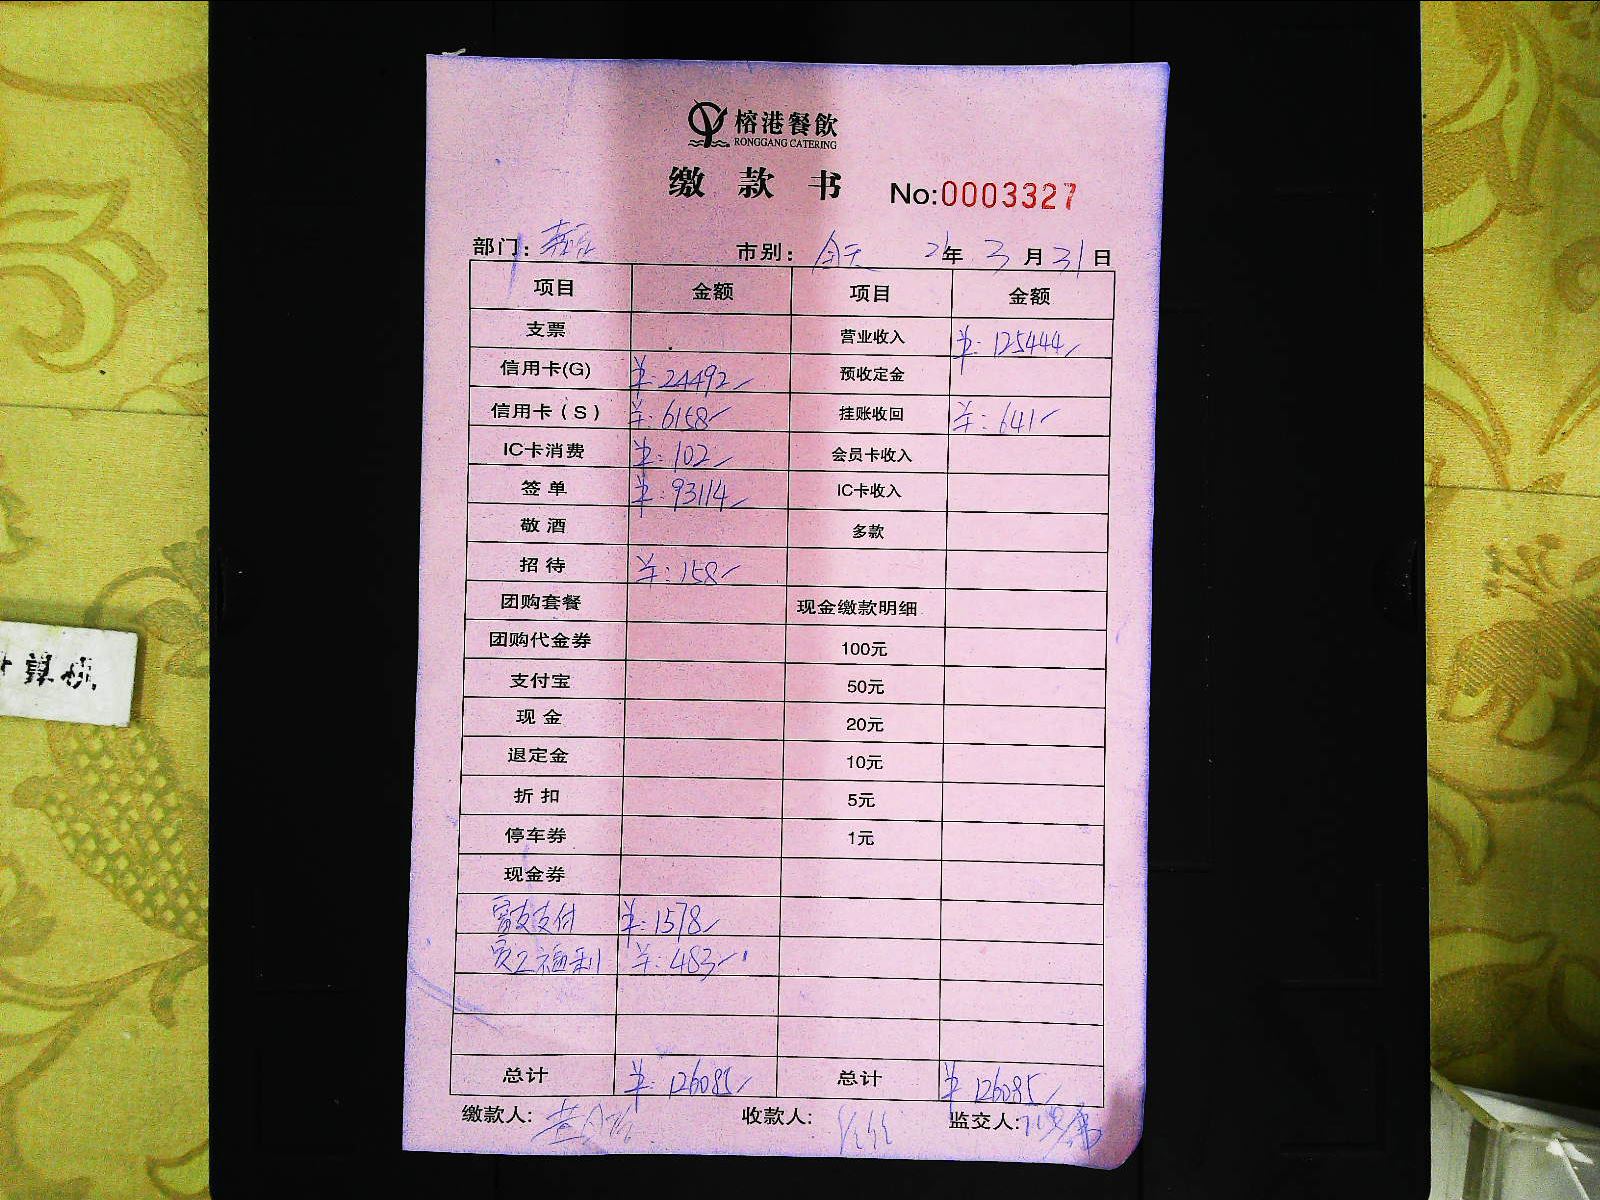 榕港餐飲
RONGGANG CATERING
缴款书 No:0003327
部门: 市别: 今天 21年 3月 31日
项目 金额 项目 金额
支票 营业收入 ¥: 125444
信用卡(G) ¥: 24492 预收定金
信用卡(S) ¥: 6158 挂账收回 ¥: 641
IC卡消费 ¥: 102 会员卡收入
签单 ¥: 93114 IC卡收入
敬酒 多款
招待 ¥: 158
团购套餐 现金缴款明细
团购代金券 100元
支付宝 50元
现金 20元
退定金 10元
折扣 5元
停车券 1元
现金券
支付 ¥: 1578
福利 ¥: 483
总计 ¥: 126085 总计 ¥ 126085
缴款人: 收款人: 监交人:
算